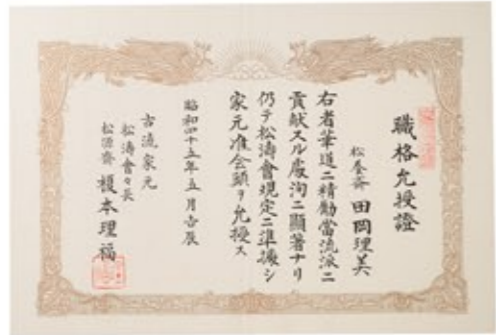 職格允授證
松養斎 田岡理美
右者華道ニ精勤當流派ニ
貢献スル處洵ニ顕著ナリ
仍テ松濤會規定ニ準據シ
家元准会頭ヲ允授ス
昭和四十五年五月吉辰
古流家元
松濤會々長
松源斎 榎本理福